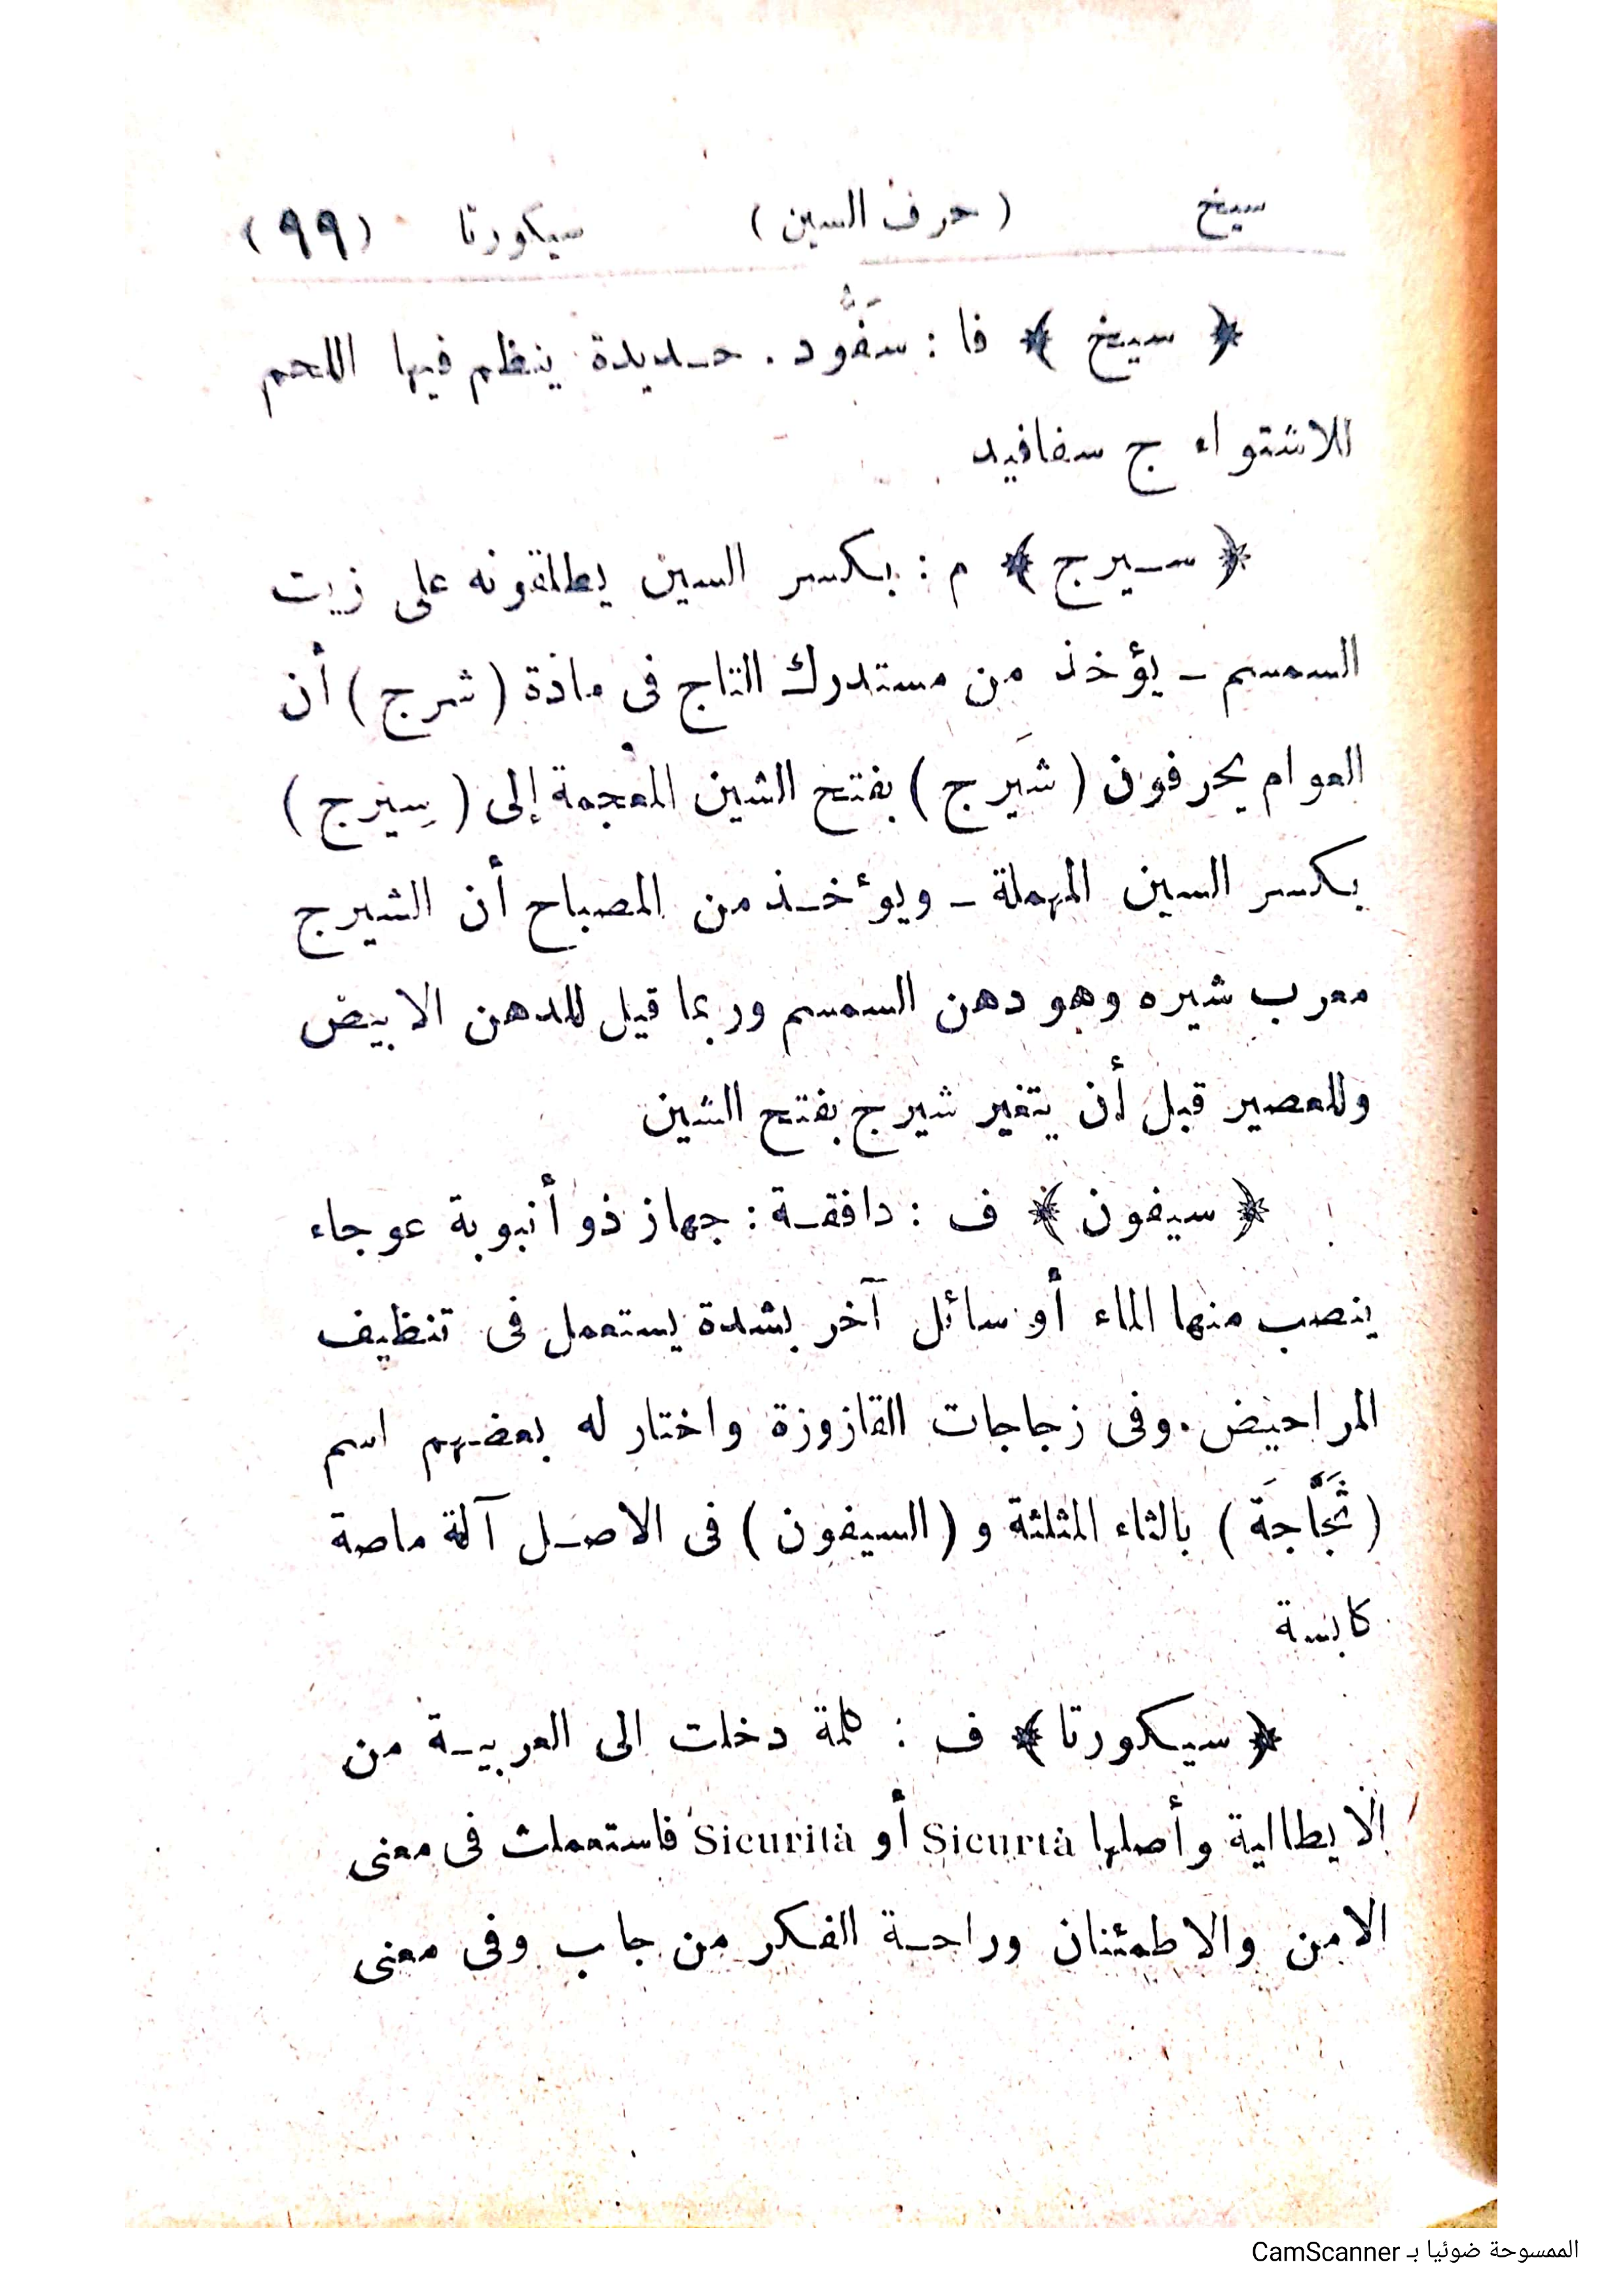 سيخ ( حرف السين ) سيكورتا (٩٩)
﴿ سيخ ﴾ فا : سَفُّود . حديدة ينظم فيها اللحم
للاشتواء ج سفافيد
﴿ سيرج ﴾ م : بكسر السين يطلقونه على زيت
السمسم - يؤخذ من مستدرك التاج فى مادة ( شرج ) أن
العوام يحرفون ( شَيرج ) بفتح الشين المعجمة إلى ( سِيرج )
بكسر السين المهملة - ويؤخذ من المصباح أن الشيرج
معرب شيره وهو دهن السمسم وربما قيل للدهن الابيض
وللعصير قبل أن يتغير شيرج بفتح الشين
﴿ سيفون ﴾ ف : دافقة : جهاز ذو أنبوبة عوجاء
ينصب منها الماء أو سائل آخر بشدة يستعمل فى تنظيف
المراحيض . وفى زجاجات القازوزة واختار له بعضهم اسم
( ثَجَّاجَة ) بالثاء المثلثة و ( السيفون ) فى الاصل آلة ماصة
كابسة
﴿ سيكورتا ﴾ ف : كلمة دخلت الى العربية من
الايطالية وأصلها Sicurtà أو Sicurità فاستعملت فى معنى
الامن والاطمئنان وراحة الفكر من جاب وفى معنى
الممسوحة ضوئيا بـ CamScanner